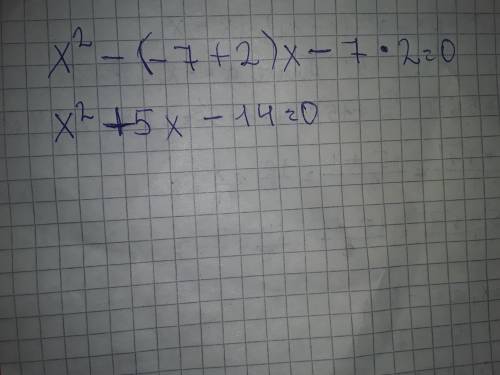 x² - (-7+2)x - 7·2=0
x² + 5x - 14=0